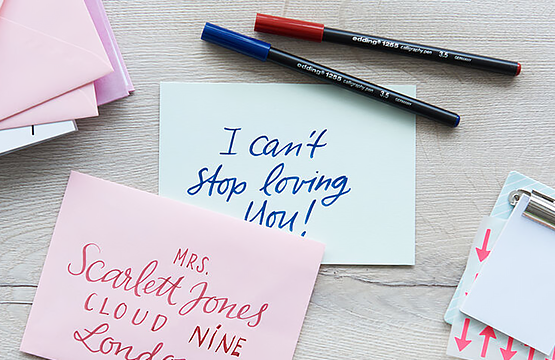 edding 1255 calligraphy pen 3.5
edding 1255 calligraphy pen 3.5 GERMANY
I can't
stop loving
You!
MRS.
Scarlett Jones
CLOUD NINE
London